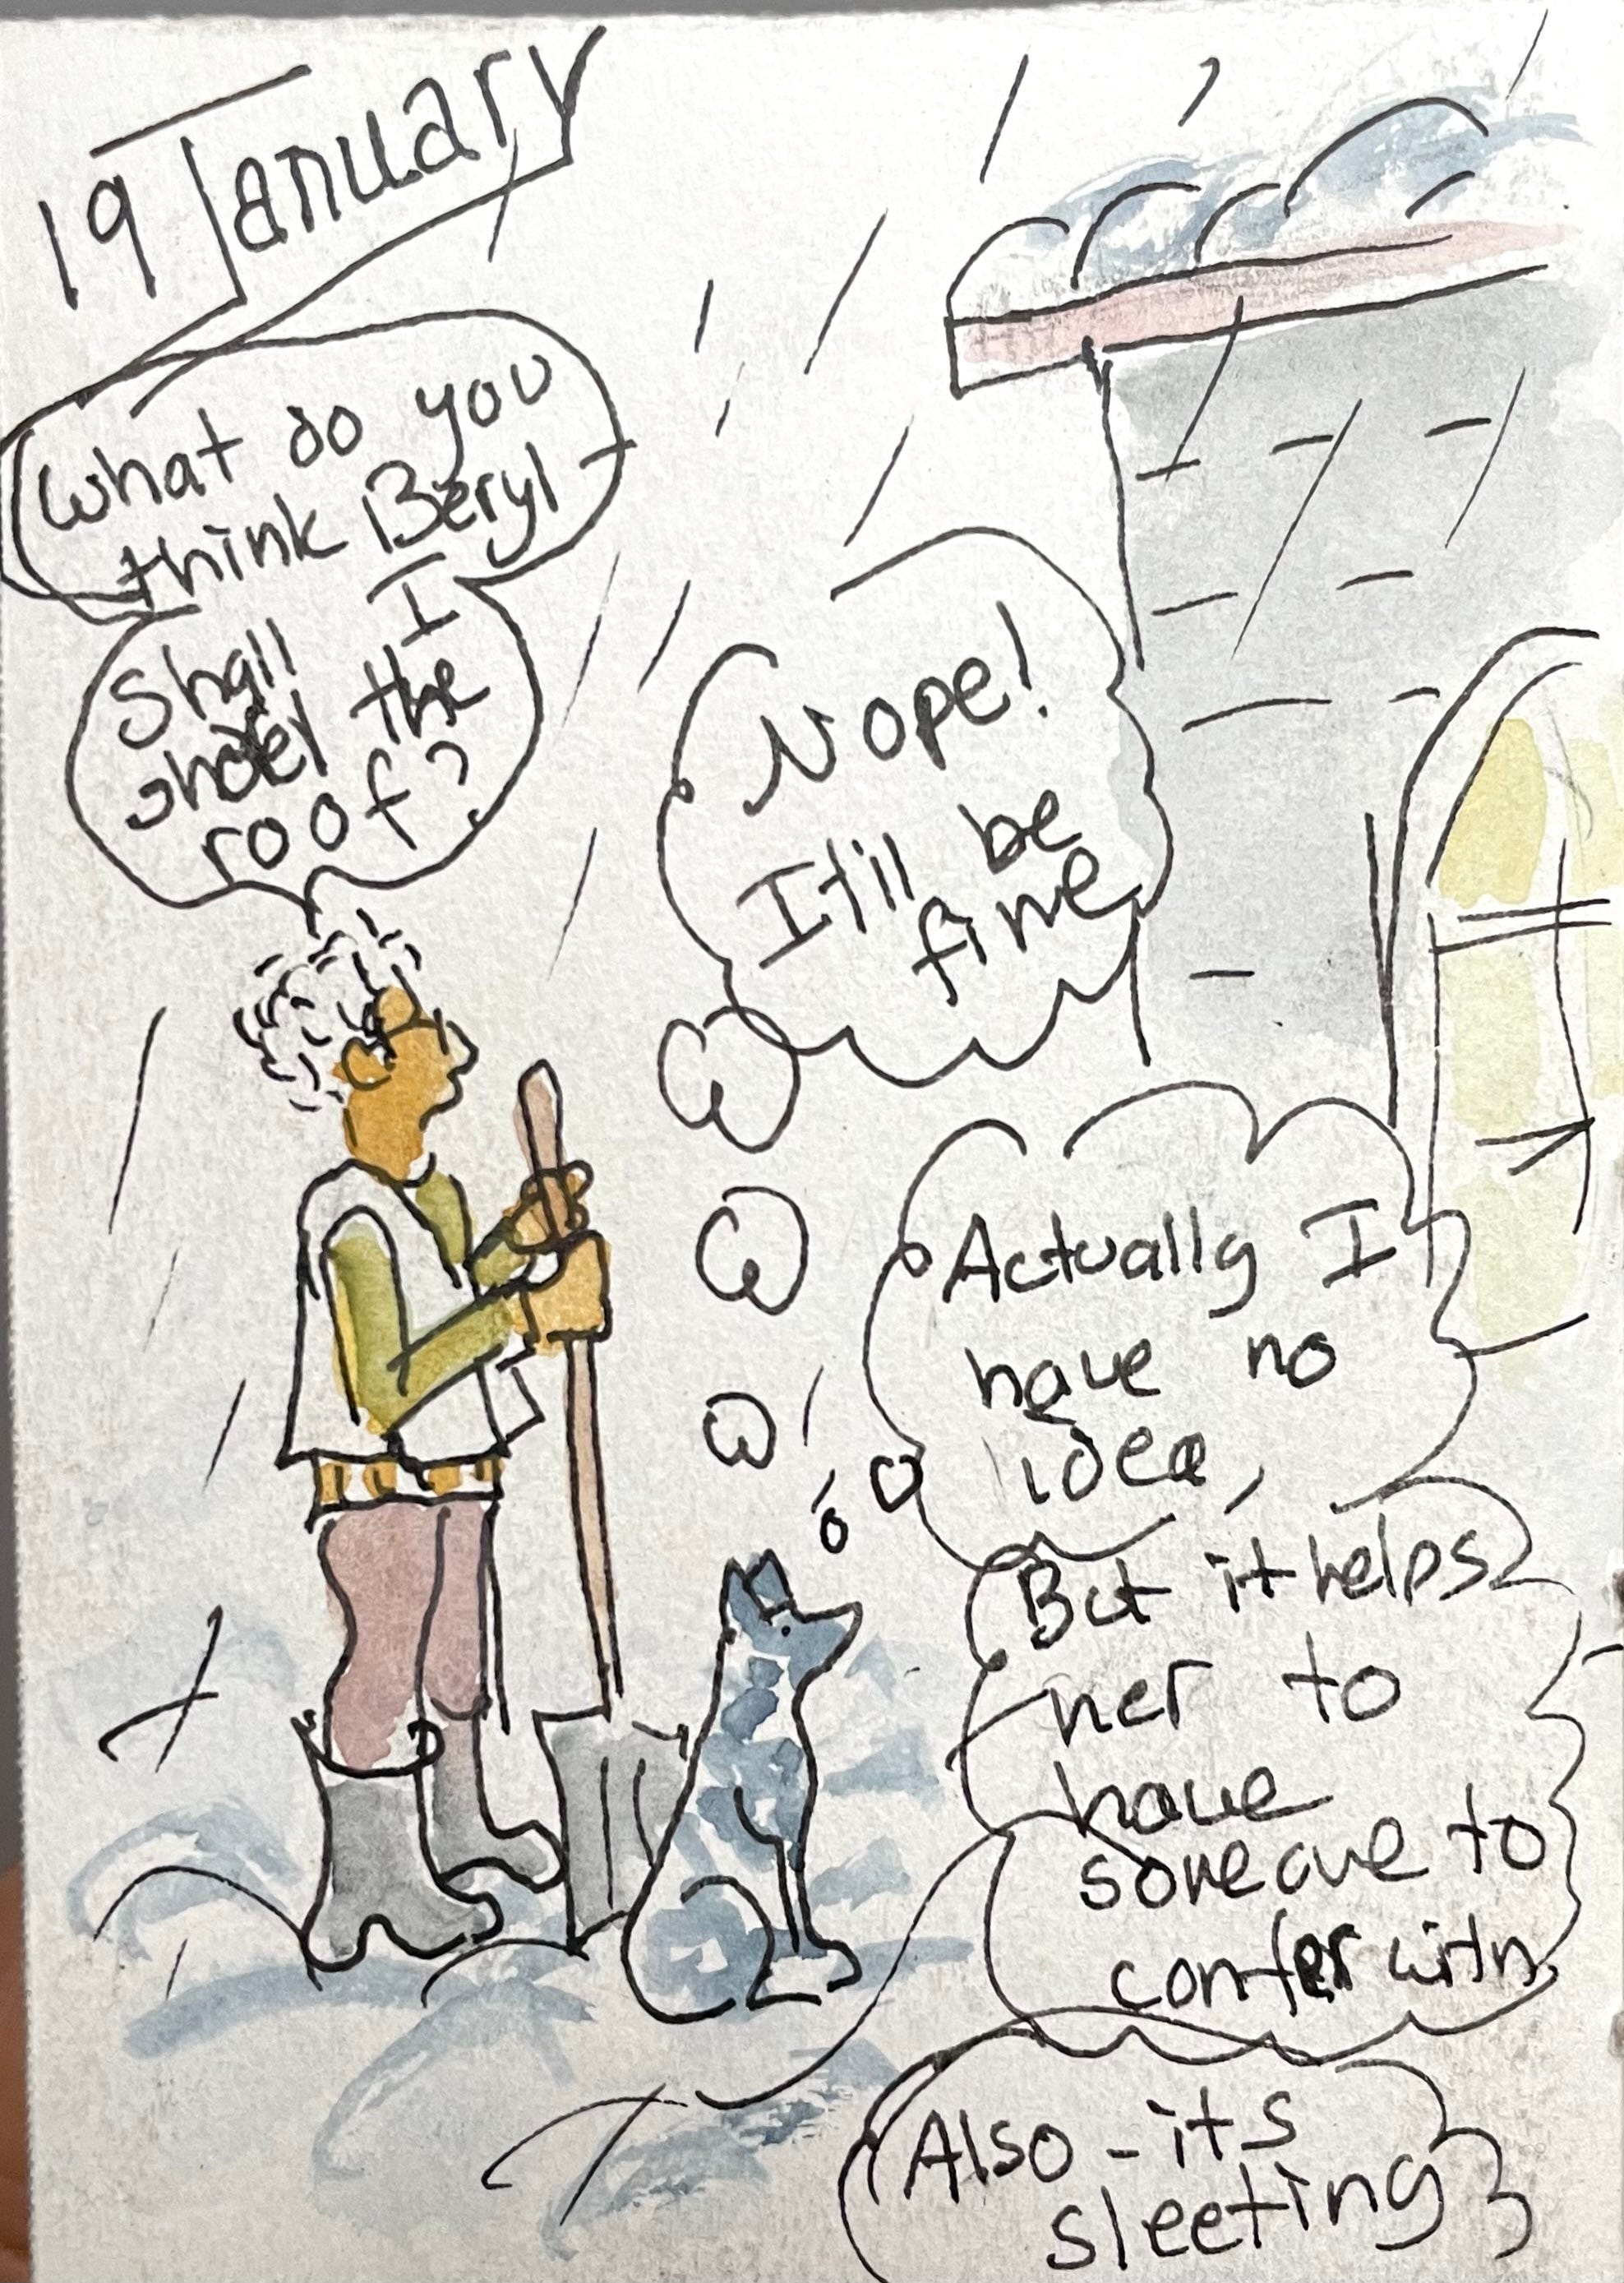 19 January
What do you
think Beryl -
Shall I
shovel the
roof?
Nope!
It'll be
fine
Actually I
have no
idea,
But it helps
her to
have
someone to
confer with
Also - its
sleeting